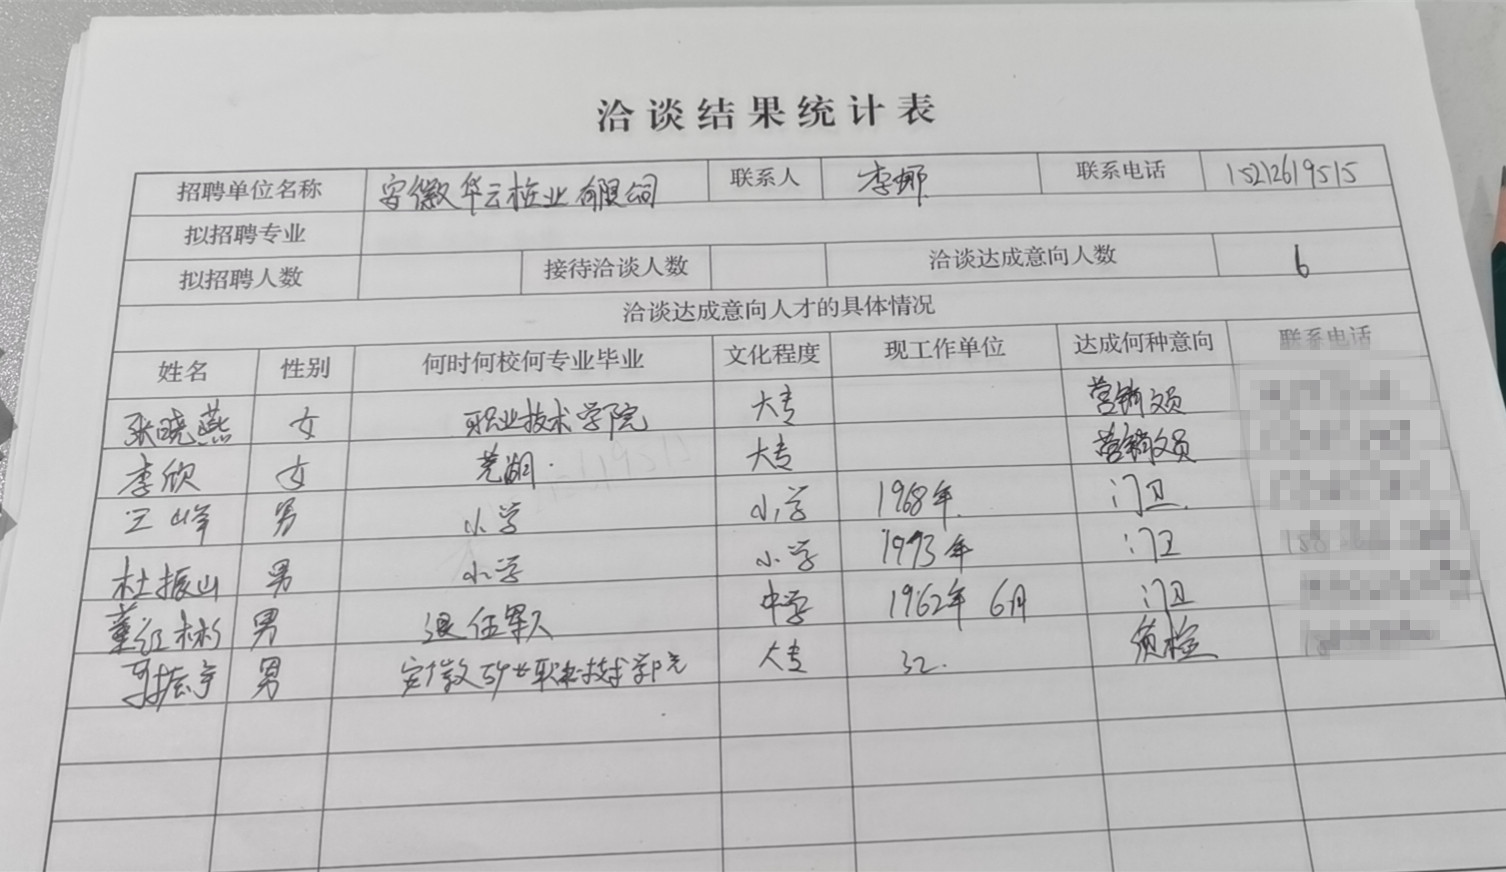 洽谈结果统计表
招聘单位名称 安徽华云桩业有限公司 联系人 李娜 联系电话 15212619515
拟招聘专业
拟招聘人数 接待洽谈人数 洽谈达成意向人数 6
洽谈达成意向人才的具体情况
姓名 性别 何时何校何专业毕业 文化程度 现工作单位 达成何种意向 联系电话
张晓燕 女 职业技术学院 大专 营销文员
李欣 女 芜湖. 大专 营销文员
王峰 男 小学 小学 1968年. 门卫
杜振山 男 小学 小学 1973年 门卫
董红彬 男 退伍军人 中学 1962年6月 门卫
男 安徽矿业职业技术学院 大专 32. 质检